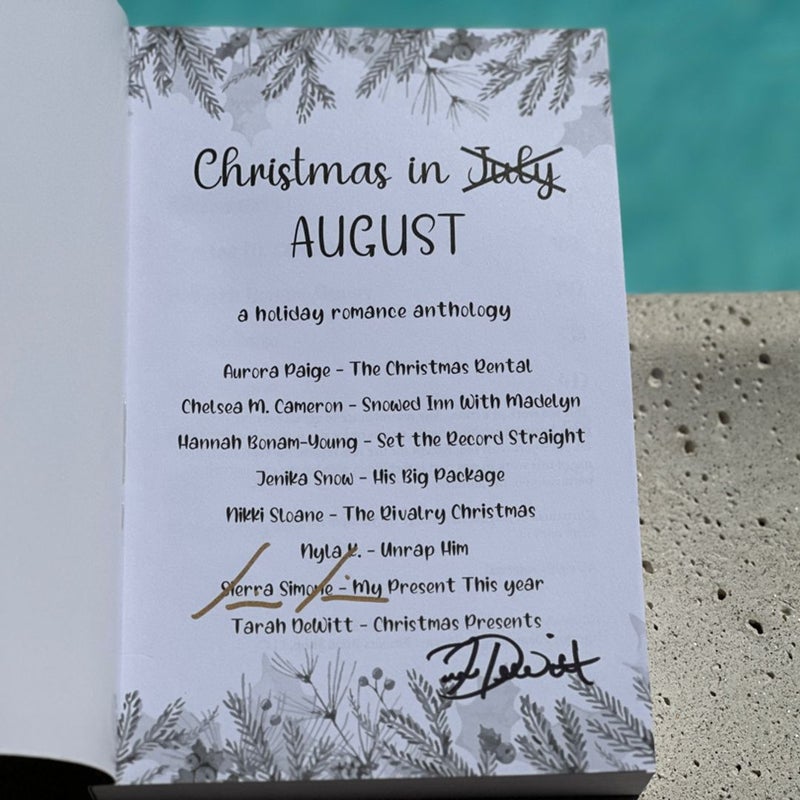 Christmas in July
AUGUST
a holiday romance anthology
Aurora Paige - The Christmas Rental
Chelsea M. Cameron - Snowed Inn With Madelyn
Hannah Bonam-Young - Set the Record Straight
Jenika Snow - His Big Package
Nikki Sloane - The Rivalry Christmas
Nyla K. - Unrap Him
Sierra Simone - My Present This year
Tarah DeWitt - Christmas Presents